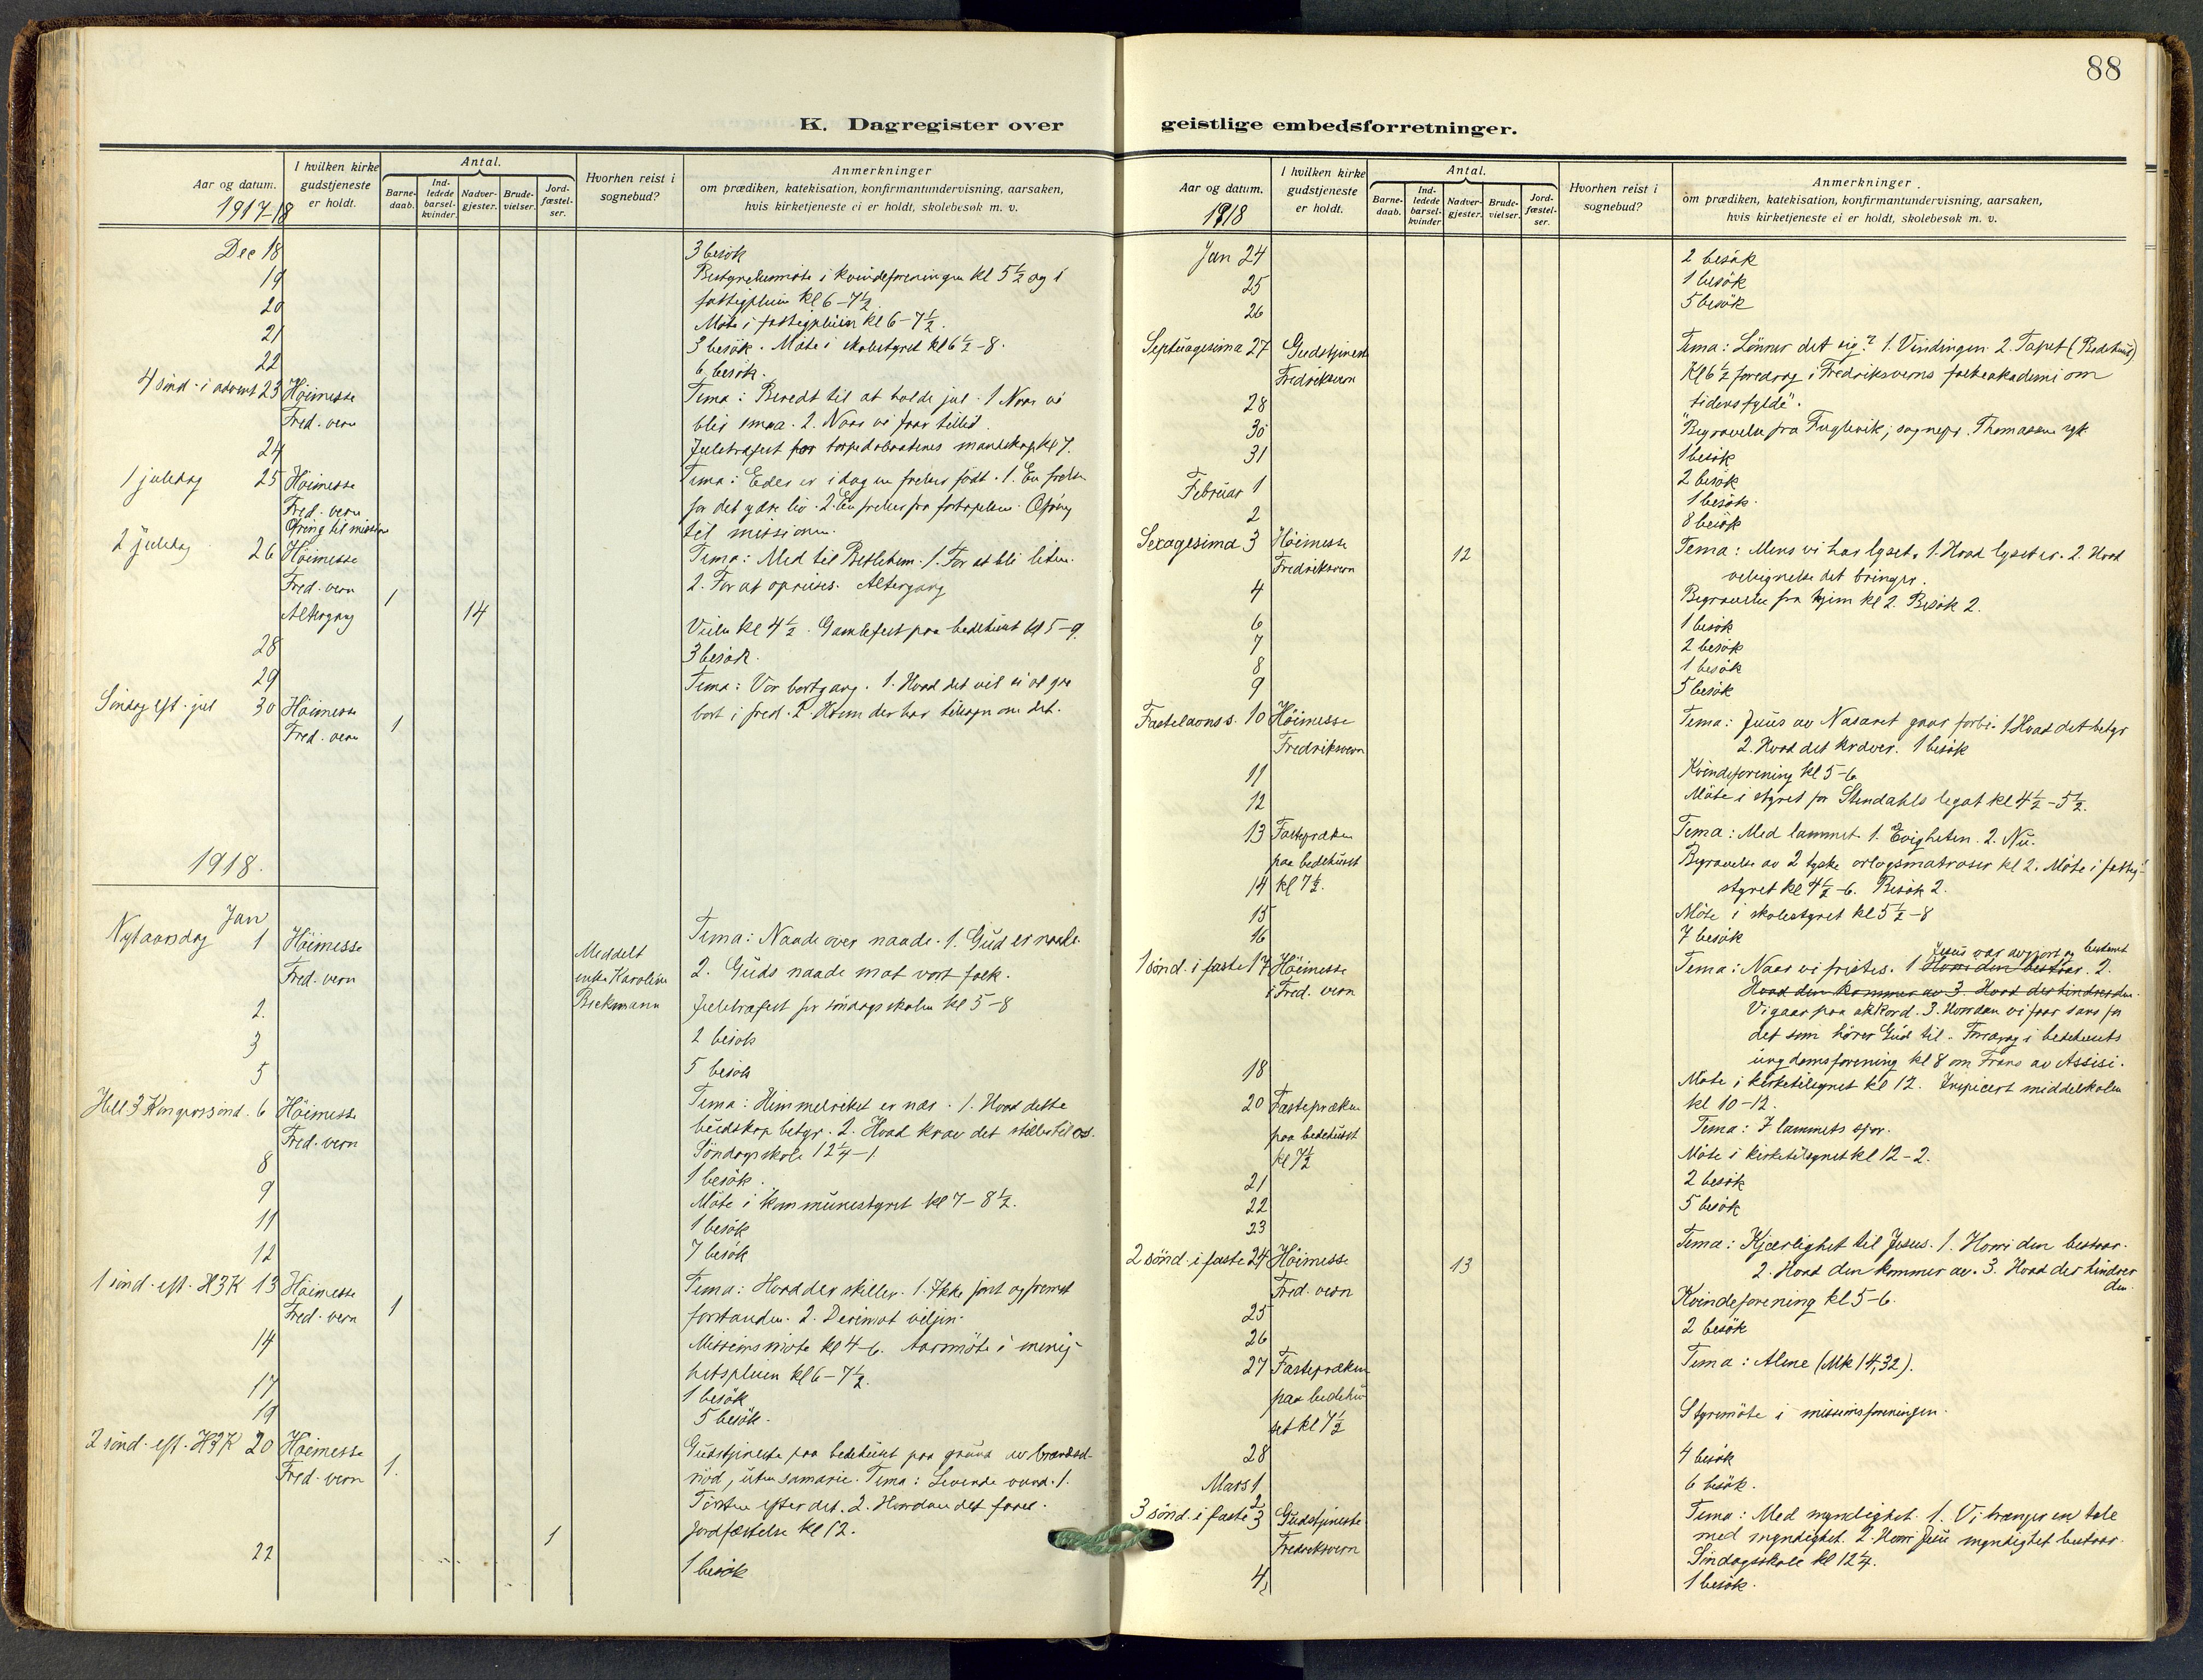 88
K. Dagregister over geistlige embedsforretninger.
Aar og datum.
1917-18
I hvilken kirke gudstjeneste er holdt.
Antal.
Barne-daab.
Ind-ledede barsel-kvinder.
Nadver-gjester.
Brude-vielser.
Jord-fæstel-ser.
Hvorhen reist i sognebud?
Anmerkninger
om prædiken, katekisation, konfirmantundervisning, aarsaken,
hvis kirketjeneste ei er holdt, skolebesøk m. v.
Dec 18 3 besök
19 Bestyrelsesmöte i kvindeforeningen kl 5 ½ og i
fattigpleien kl 6-7½
20 Möte i fattigpleien kl 6-7½.
21 3 besök. Möte i skolestyret kl 6½-8.
22 6 besök.
4 sönd. i advent 23 Höimesse Tema: Beredt til at holde jul. 1 Naar vi
Fred. vern blir smaa. 2. Naar vi faar tillid.
24 Juletræfest for torpedobaatenes mandskap kl 7.
1 juledag 25 Höimesse Tema: Eder er idag en frelser födt. 1. En frelser
Fred. vern for det ydre liv. 2. En frelser fra fortapelsen. Ofring
Ofring til mission til missionen.
2 juledag 26 Höimesse Tema: Med til Betlehem. 1. For at bli liten.
Fred. vern 1 2. For at opreises. Altergang
Altergang 14
Vielse kl 4½. Gamlefest paa bedehuset kl 5-9.
28 3 besök.
29
Söndag eft. jul 30 Höimesse Tema: Vor bortgang. 1. Hvad det vil si at gaa
Fred. vern 1 bort i fred. 2. Hvem der har tilsagn om det.
1918.
Jan
Nytaarsdag 1 Höimesse Meddelt Tema: Naade over naade. 1. Gud er naade.
Fred. vern enke Karoline 2. Guds naade mot vort folk.
2. Brekmann Juletræfest for söndagsskolen kl 5-8
3 2 besök
5 5 besök
Hell 3 Kongers sönd. 6 Höimesse Tema: Himmelriket er nær. 1. Hvad dette
Fred. vern budskap betyr. 2. Hvad krav det stiller til os.
Söndagsskole 12¼-1
8 1 besök.
9 Möte i kommunestyret kl 7-8½.
11 1 besök
12 7 besök
1 sönd. eft. H3K 13 Höimesse Tema: Hvad der skiller. 1. Ikke först og fremst
Fred. vern 1 forstanden. 2. Derimot viljen.
14 Missionsmöte kl 4-6. Aarsmöte i menig-
hetspleien kl 6-7½.
17 1 besök
19 5 besök.
2 sönd. eft. H3K 20 Höimesse Gudstjeneste paa bedehuset paa grund av brændsel-
Fred. vern 1. nöd, uten samarie. Tema: Levende vand. 1.
Törsten efter det. 2. Hvordan det faaes.
1 Jordfæstelse kl 12.
22 1 besök
Aar og datum.
1918
I hvilken kirke gudstjeneste er holdt.
Antal.
Barne-daab.
Ind-ledede barsel-kvinder
Nadver-gjester.
Brude-vielser.
Jord-fæstel-ser.
Hvorhen reist i sognebud?
Anmerkninger.
om prædiken, katekisation, konfirmantundervisning, aarsaken,
hvis kirketjeneste ei er holdt, skolebesøk m. v.
Jan 24 2 besök
25 1 besök
26 5 besök
Septuagesima 27 Gudstjeneste Tema: Lönner det sig? 1. Vindingen 2. Tapet (Bedehuset)
Fredriksvern Kl 6½ foredrag i Fredriksverns folkeakademi om
28 "tidens fylde".
30 Begravelse fra Fuglevik; sognepr. Thomassen syk
31 1 besök
2 besök
Februar 1 1 besök.
2 8 besök
Sexagesima 3 Höimesse 12 Tema: Mens vi har lyset. 1. Hvad lyset er. 2. Hvad
Fredriksvern velsignelse det bringer.
4 Begravelse fra hjem kl 2. Besök 2.
6 1 besök
7 2 besök
8 1 besök
9 5 besök
Fastelavns s. 10 Höimesse Tema: Jesus av Nasaret gaar forbi. 1 Hvad det betyr
Fredriksvern 2. Hvad det kræver. 1 besök
11 Kvindeforening kl 5-6
12 Möte i styret for Stendahls legat kl 4½-5½.
13 Fastepræken Tema: Med lammet. 1. Evigheten. 2. Nu.
paa bedehuset Begravelse av 2 tyske orlogsmatroser kl 2. Möte i fattig-
14 kl 7½. styret kl 4½-6. Besök 2.
15 Möte i skolestyret kl 5½-8
16 7 besök
Jesus var avgjort og bestemt
1 sönd. i faste 17 Höimesse Tema: Naar vi fristes. 1 Hvori den bestaar. 2.
i Fred. vern Hvad den kommer av 3. Hvad der hindrer den.
Vi gaar paa akkord. 3. Hvordan vi faar sans for
det som hörer Gud til. Foredrag i bedehusets
ungdomsforening kl 8 om Frans av Assisi.
18 Möte i kirketilsynet kl 12. Inspicert middelskolen
kl 10-12.
20 Fastepræken Tema: I lammets spor.
paa bedehuset Möte i kirketilsynet kl 12-2.
kl 7½
21 2 besök
22 5 besök
23
2 sönd. i faste 24 Höimesse 13 Tema: Kjærlighet til Jesus. 1. Hvori den bestaar.
Fred. vern 2. Hvad den kommer av. 3. Hvad der hindrer
den.
25 Kvindeforening kl 5-6.
26 2 besök
27 Fastepræken Tema: Alene (Mk 14,32).
paa bedehu-
set kl 7½ Styremöte i missionsforeningen.
28 4 besök
Mars 1 6 besök.
2
3 sönd. i faste 3 Gudstjeneste Tema: Med myndighet. 1. Vi trænger en tale
Fredriksvern med myndighet. 2. Hvori Jesu myndighet bestaar.
Söndagsskole kl 12¼.
4 1 besök.